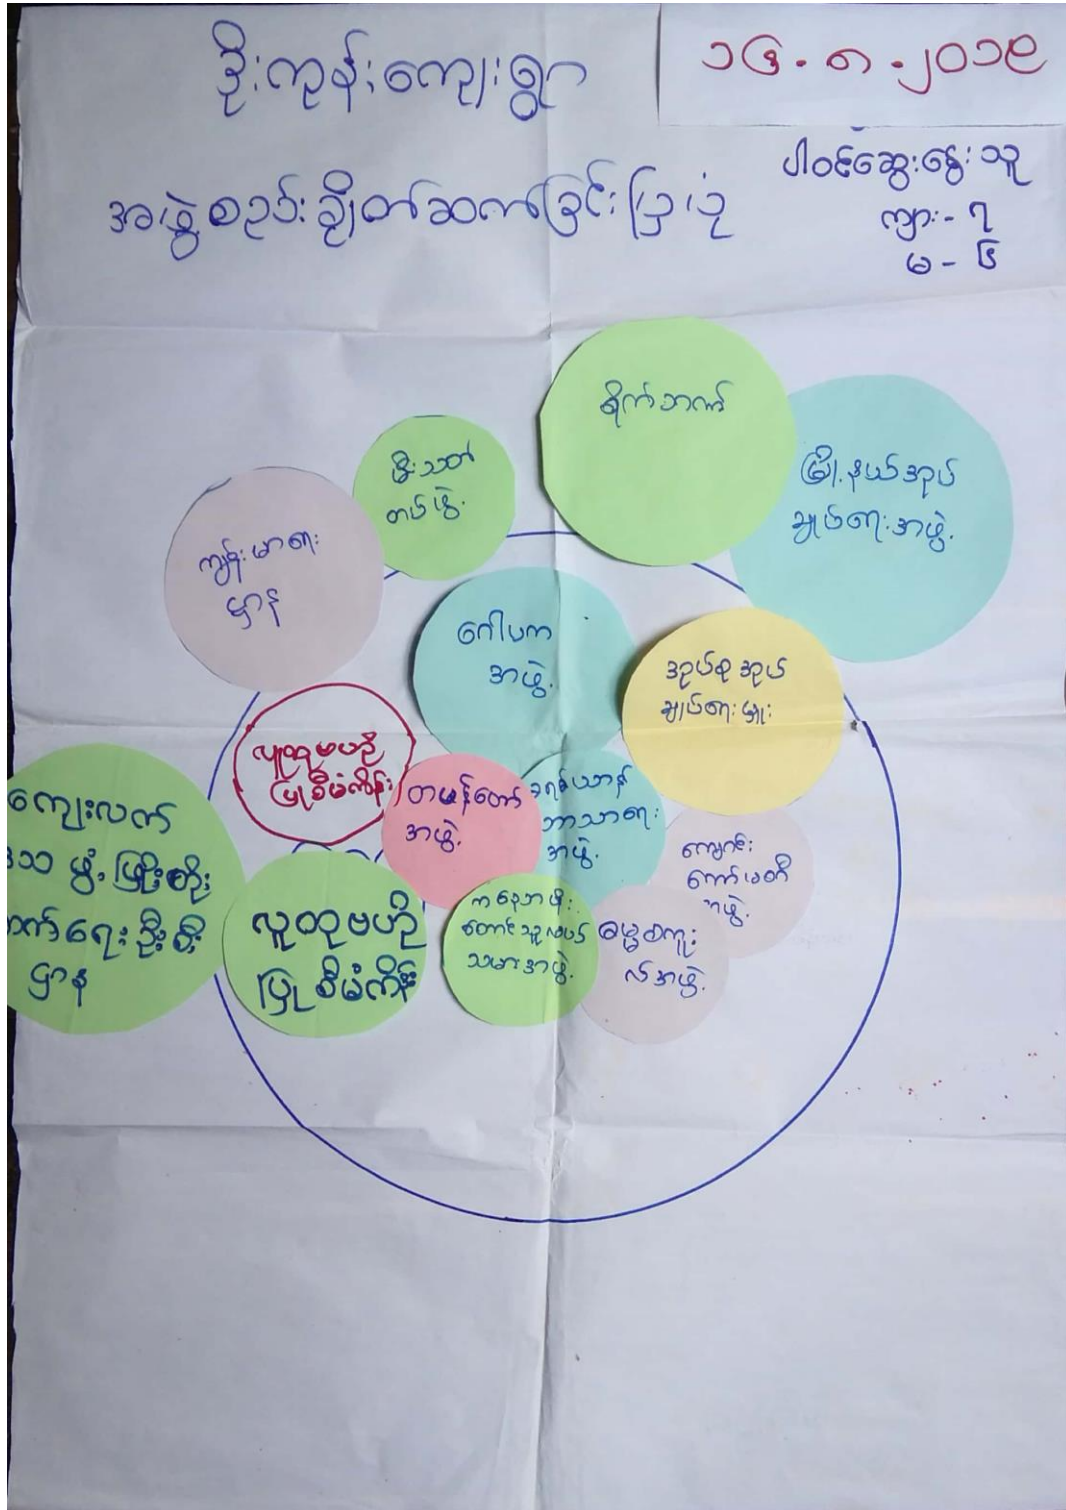 ဒိုးကုန်းကျေးရွာ
၁၄.၈.၂၀၁၉
အဖွဲ့စည်းချိတ်ဆက်ခြင်းပြပုံ
ပါဝင်ဆွေးနွေးသူ
ကျား - ၇
မ - ၆
စိုက်ဘဏ်
မြို့နယ်အုပ်
ချုပ်ရေးအဖွဲ့
မီးသတ်
တပ်ဖွဲ့
ကျန်းမာရေး
ဌာန
ဂေါပက
အဖွဲ့
အုပ်စုအုပ်
ချုပ်ရေးမှူး
လူထုဗဟို
ပြုစီမံကိန်း
တမန်တော်
အဖွဲ့
ခရစ်ယာန်
ဘာသာရေး
အဖွဲ့
ကျောင်း
ကော်မတီ
အဖွဲ့
ကျေးလက်
ဒေသ ဖွံ့ဖြိုးတိုး
တက်ရေးဦးစီး
ဌာန
လူထုဗဟို
ပြုစီမံကိန်း
တောင်သူလယ်
သမားအဖွဲ့
ဓမ္မစကူး
လ်အဖွဲ့